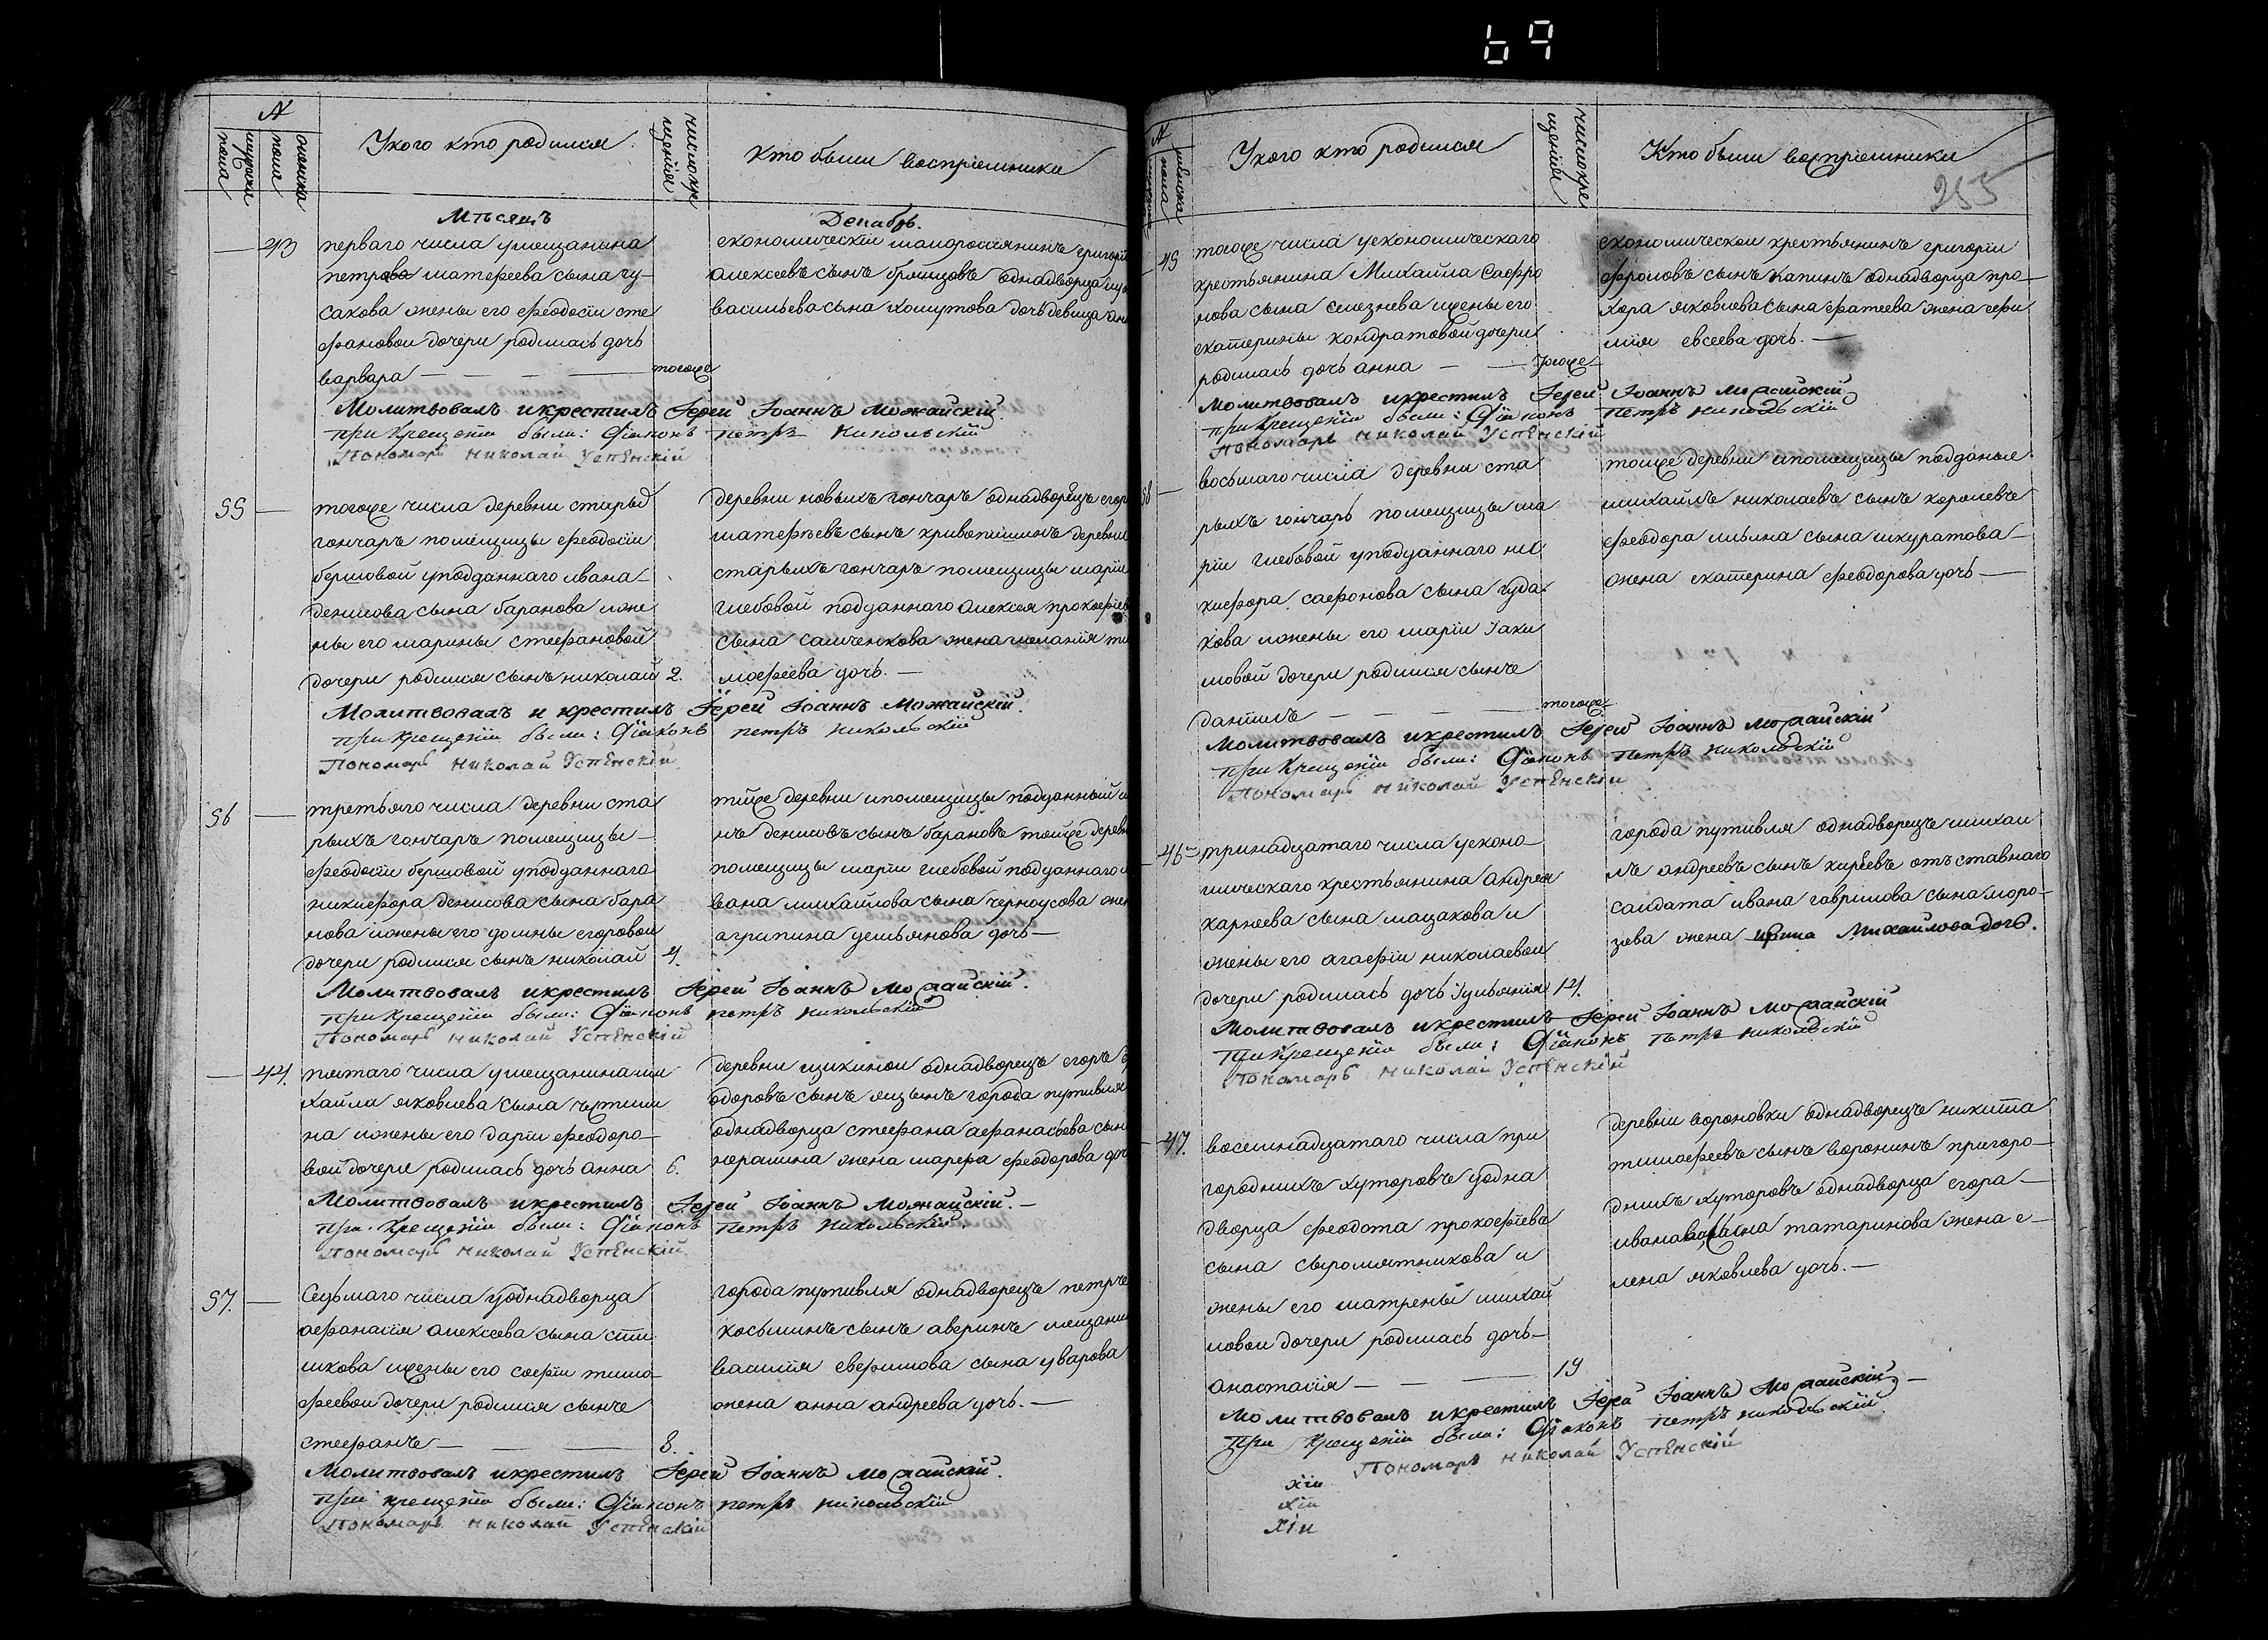 69
№
мужеска пола
женска пола
У кого кто родился
число крещения
Кто были восприемники
Месяцъ
Декабрь.
43
перваго числа умещанина
петрова матфеева сына гу-
сакова жены его феодосии сте
фановой дочери родилась дочь
варвара — тогоже
економический малороссиянинъ григорий
алексеевъ сынъ однадворца
васильева сына кошутова дочь девица
Молитвовалъ и крестилъ Іерей Іоаннъ Можайскій.
При Крещеніи были: Діаконъ петръ Никольскій
Пономарь Николай Успенскій
55
тогоже числа деревни старых
гончаръ помещицы феодосии
бершовой уподданнаго ивана
денисова сына баранова и же
ны его марины стефановой
дочери родился сынъ николай 2.
деревни новыхъ гончаръ однадворецъ егор
матфеевъ сынъ кривопишинъ деревни
старыхъ гончаръ помещицы марии
глебовой подданнаго алексея прокофиев
сына самченкова жена мелания ти
мофеева дочь. —
Молитвовалъ и крестилъ Іерей Іоаннъ Можайскій.
При Крещеніи были: Діаконъ петръ Никольскій
Пономарь Николай Успенскій
56
третьяго числа деревни ста
рыхъ гончаръ помещицы
феодосии бершовой уподданнаго
никифора денисова сына бара
нова и жены его домны егоровой
дочери родился сынъ николай 4.
тойже деревни и помещицы подданный и
нъ денисовъ сынъ барановъ тойже деревни
помещицы марии глебовой подданнаго и
вана михайлова сына черноусова жена
агрипина демьянова дочь —
Молитвовалъ и крестилъ Іерей Іоаннъ Можайскій.
При Крещеніи были: Діаконъ петръ Никольскій
Пономарь Николай Успенскій
44.
пятаго числа умещанина ми
хайла яковлева сына
на и жены его дарии феодоро-
вой дочери родилась дочь анна 6.
деревни щикиной однадворецъ егоръ ф
одоровъ сынъ яцынъ города путивля
однадворца стефана афанасьева сына
жена марфа феодорова дочь
Молитвовалъ и крестилъ Іерей Іоаннъ Можайскій. —
При Крещеніи были: Діаконъ петръ Никольскій.
Пономарь Николай Успенскій
57.
Седьмаго числа уоднадворца
афанасия алексеева сына
шкова и жены его софии тимо-
феевой дочери родился сынъ
стефанъ — 8.
города путивля однадворецъ петръ
косьминъ сынъ аверинъ мещанина
василия ефимова сына уварова
жена анна андреева дочь. —
Молитвовалъ и крестилъ Іерей Іоаннъ Можайскій.
При крещеніи были: Діаконъ петръ Никольскій
Пономарь Николай Успенскій
№
женска пола
У кого кто родился
число крещения
Кто были восприемники
255
45
тогоже числа уекономическаго
крестьянина Михаила Сафро
нова сына селезнева и жены его
екатерины кондратовой дочери
родилась дочь анна — тогоже
економической крестьянинъ григорий
фроловъ сынъ капинъ однадворца про-
хора яковлева сына фатеева жена
евсеева дочь. —
Молитвовалъ и крестилъ Іерей Іоаннъ Можайскій
При Крещеніи были: Діаконъ Петръ Никольскій
Пономарь Николай Успенскій
58
восьмаго числа деревни ста
рыхъ гончаръ помещицы ма
рии глебовой уподданнаго ни
кифора сафонова сына гуда
кова и жены его марии Іаки
мовой дочери родился сынъ
даниилъ — тогоже
тойже деревни и помещицы подданые
михайлъ николаевъ сынъ
феодора ильина сына шкуратова
жена екатерина феодорова дочь —
Молитвовалъ и крестилъ Іерей Іоаннъ Можайскій
При Крещеніи были: Діаконъ Петръ Никольскій
Пономарь Николай Успенскій
46
тринадцатаго числа уеконо-
мическаго крестьянина андрея
карнеева сына мацакова и
жены его агафии николаевой
дочери родилась дочь Іулиания 14.
города путивля однадворецъ михаи
лъ андреевъ сынъ киреевъ отъставнаго
салдата ивана гаврилова сына моро-
зова жена ирина Михаилова дочь.
Молитвовалъ и крестилъ Іерей Іоаннъ Можайскій
При Крещеніи были: Діаконъ петръ Никольскій
Пономарь Николай Успенскій
47.
восемнадцатаго числа при
городнихъ хуторовъ уодна
дворца феодота прокофиева
сына сыромятникова и
жены его матрены михай
ловой дочери родилась дочь
анастасия — 19
деревни вороновки однадворецъ никита
тимофеевъ сынъ воронинъ пригоро-
днихъ хуторовъ однадворца егора
иванова сына татаринова жена е-
лена яковлева дочь. —
Молитвовалъ и крестилъ Іерей Іоаннъ Можайскій —
При Крещеніи были: Діаконъ петръ Никольскій
Пономарь Николай Успенскій